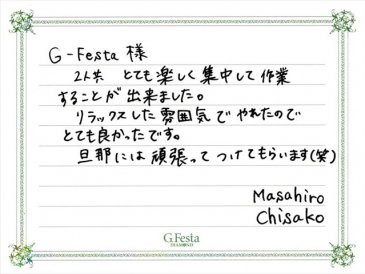 G-Festa 様
2人共 とても楽しく集中して作業
することが出来ました。
リラックスした雰囲気でやれたので
とても良かったです。
旦那には頑張ってつけてもらいます(笑)
Masahiro
Chisako
G.Festa
DIAMOND